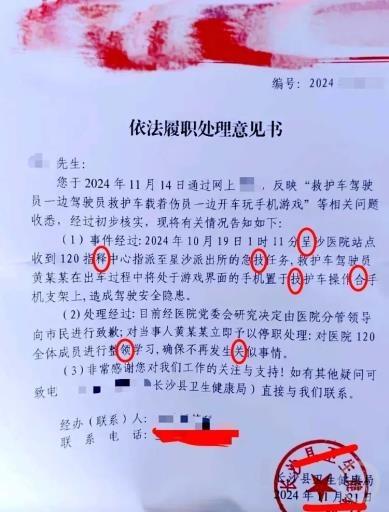 编号：2024
依法履职处理意见书
先生：
您于2024年11月14日通过网上 ，反映“救护车驾驶
员一边驾驶员救护车载着伤员一边开车玩手机游戏”等相关问题
收悉，经过初步核实，现将有关情况告知如下：
（1）事件经过：2024年10月19日1时11分呈沙医院站点
收到120指释中心指派至星沙派出所的急技任务，救护车驾驶员
黄某某在出车过程中将处于游戏界面的手机置于技护车操作合手
机支架上，造成驾驶安全隐患。
（2）处理经过：目前经医院党委会研究决定由医院分管领导
向市民进行致歉；对当事人黄某某立即予以停职处理；对医院120
全体成员进行整领学习，确保不再发生关似事情。
（3）非常感谢您对我们工作的关注与支持！如有其他疑问可
致电 长沙县卫生健康局）直接与我们联系。
经办（联系）人：
联系电话：
长沙县卫生健康局
2024年11月21日